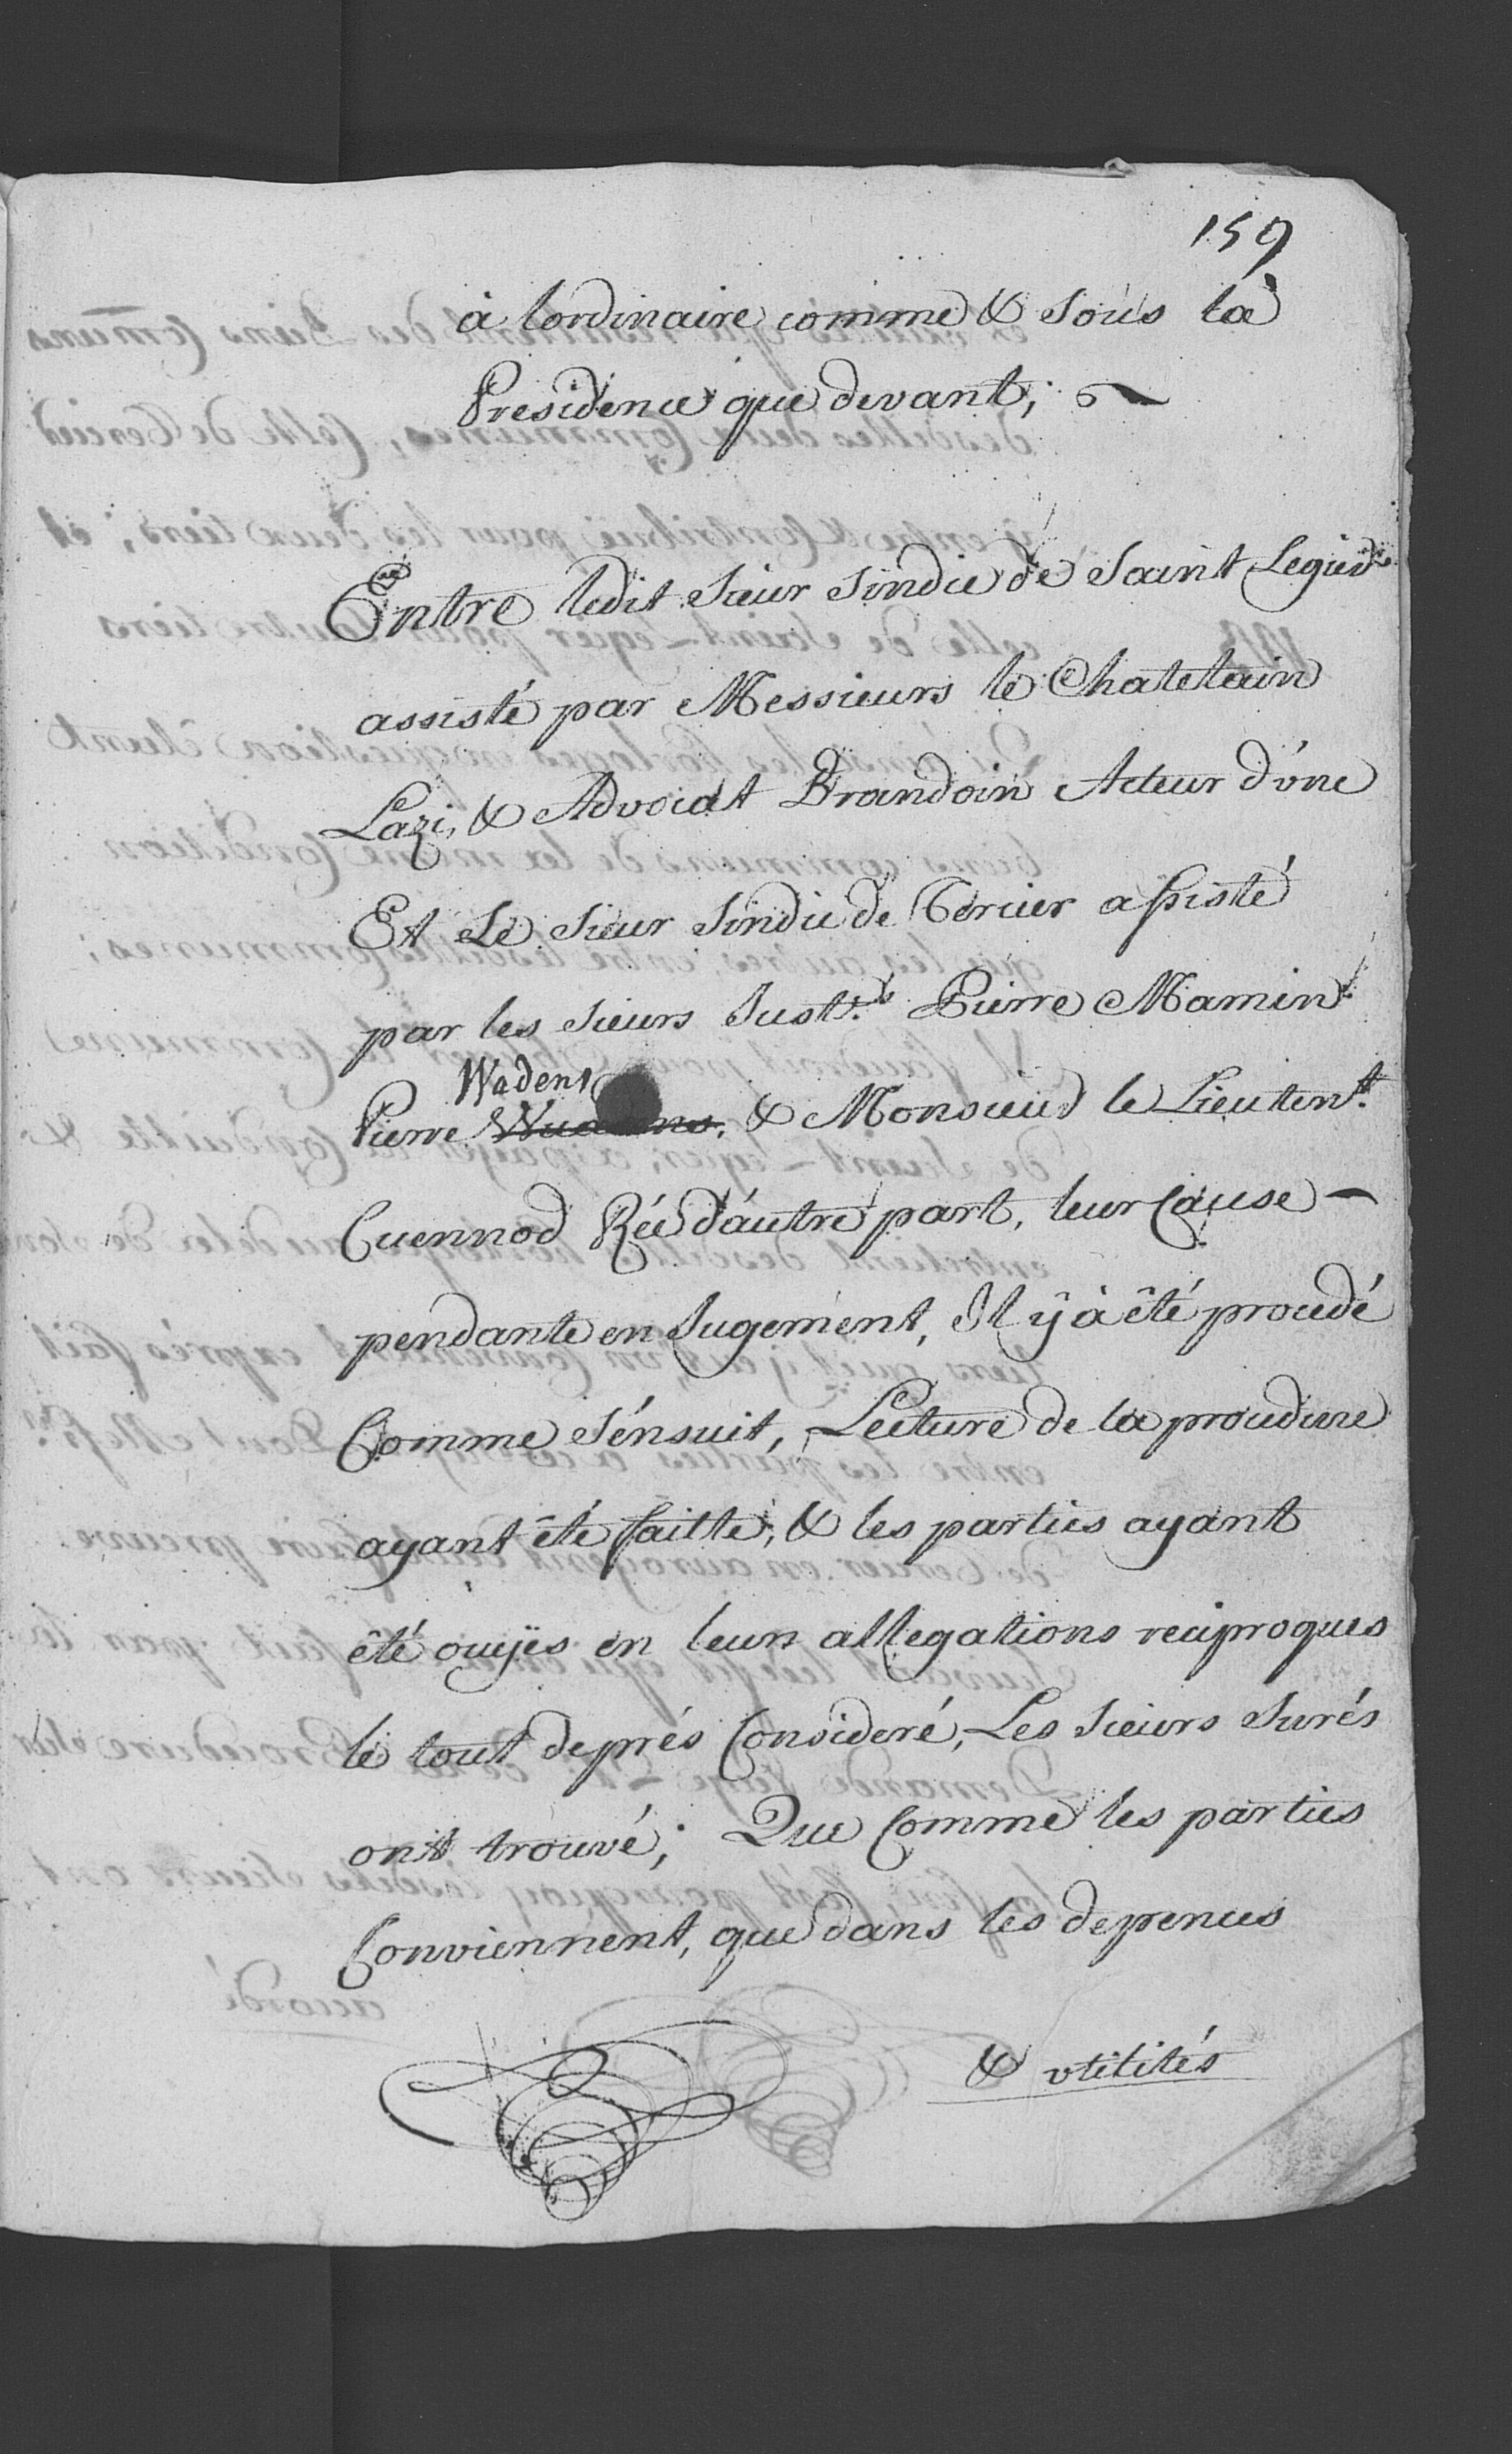 159
à lordinaire comme & sous la
Presidence que devant;
Entre ledit Sieur Sindic de Saint Legier
assisté par Messieurs le Chatelain
Lazi, & Advocat Brandoin Acteur d'vne
Et Le Sieur Sindic de Cercier assisté
par les Sieurs Just.rs Pierre Mamin
Wadens
Pierre & Monsieur le Lieuten.t
Cuennod Rée d'autre part, leur Cause
pendante en Jugement, Il ÿ à êté procedé
Comme s'énsuit, Lecture de la procedure
ayant êté faitte, & les parties ayant
êté ouÿes en leurs allegations reciproques
le tout deprés Consideré, Les Sieurs Jurés
ont trouvé; Que Comme les parties
Conviennent, que dans les depences
& vtilités